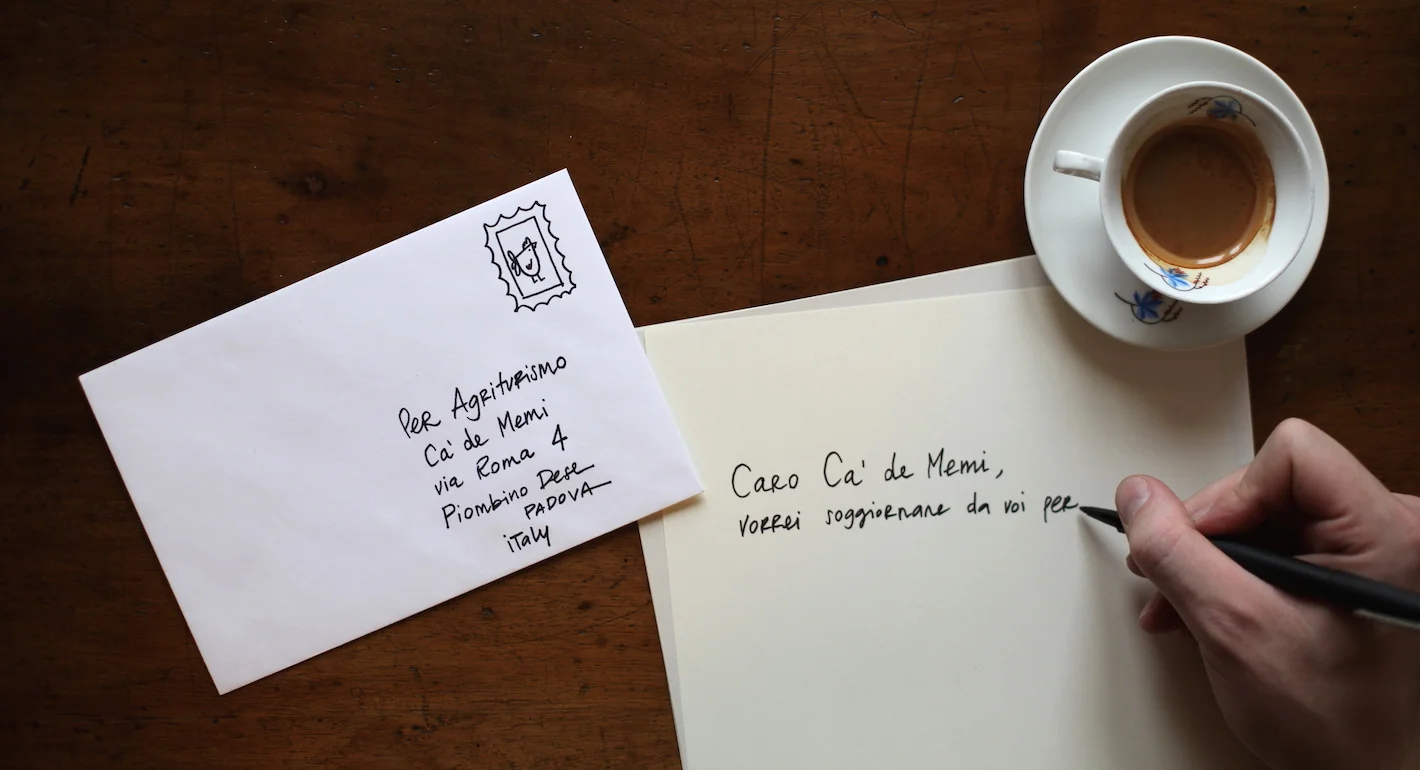 Per Agriturismo
Ca' de Memi
via Roma 4
Piombino Dese
PADOVA
iTaly
Caro Ca' de Memi,
vorrei soggiornare da voi per